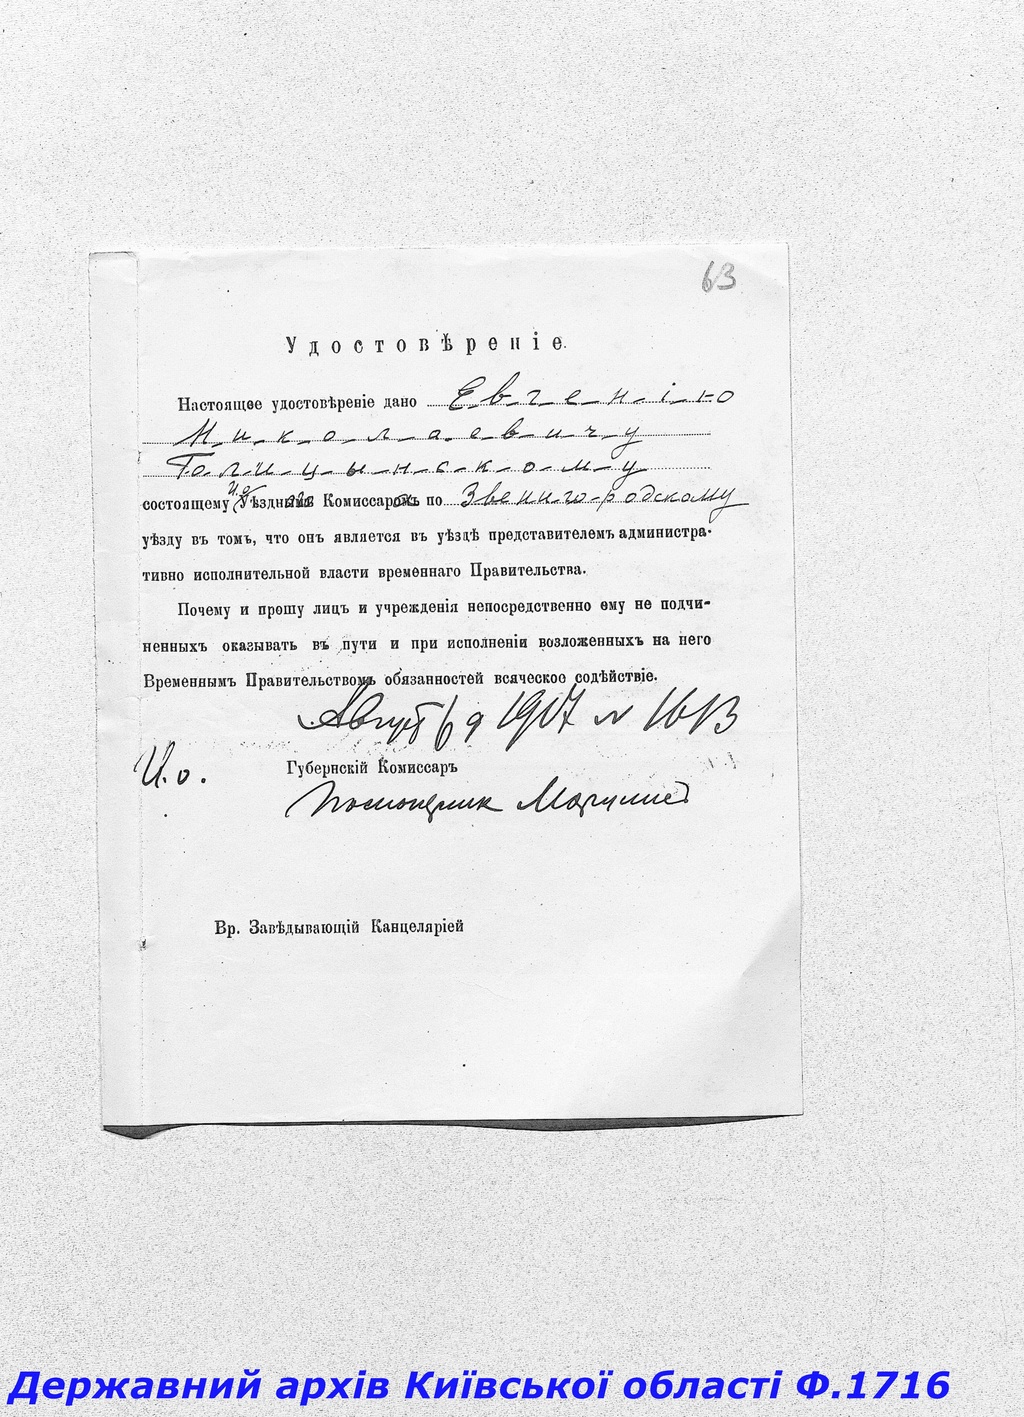 63
Удостовѣреніе.
Настоящее удостовѣреніе дано Евгенію
Николаевичу
Голицынскому
состоящему И.о. Уѣзднымъ Комиссаромъ по Звенигородскому
уѣзду въ томъ, что онъ является въ уѣздѣ представителемъ администра-
тивно исполнительной власти временнаго Правительства.
Почему и прошу лицъ и учрежденія непосредственно ему не подчи-
ненныхъ оказывать въ пути и при исполненіи возложенныхъ на него
Временнымъ Правительствомъ обязанностей всяческое содѣйствіе.
Август 6 д 1917 № 1613
И.о. Губернскій Комиссаръ
Вр. Завѣдывающій Канцеляріей
Державний архів Київської області Ф.1716